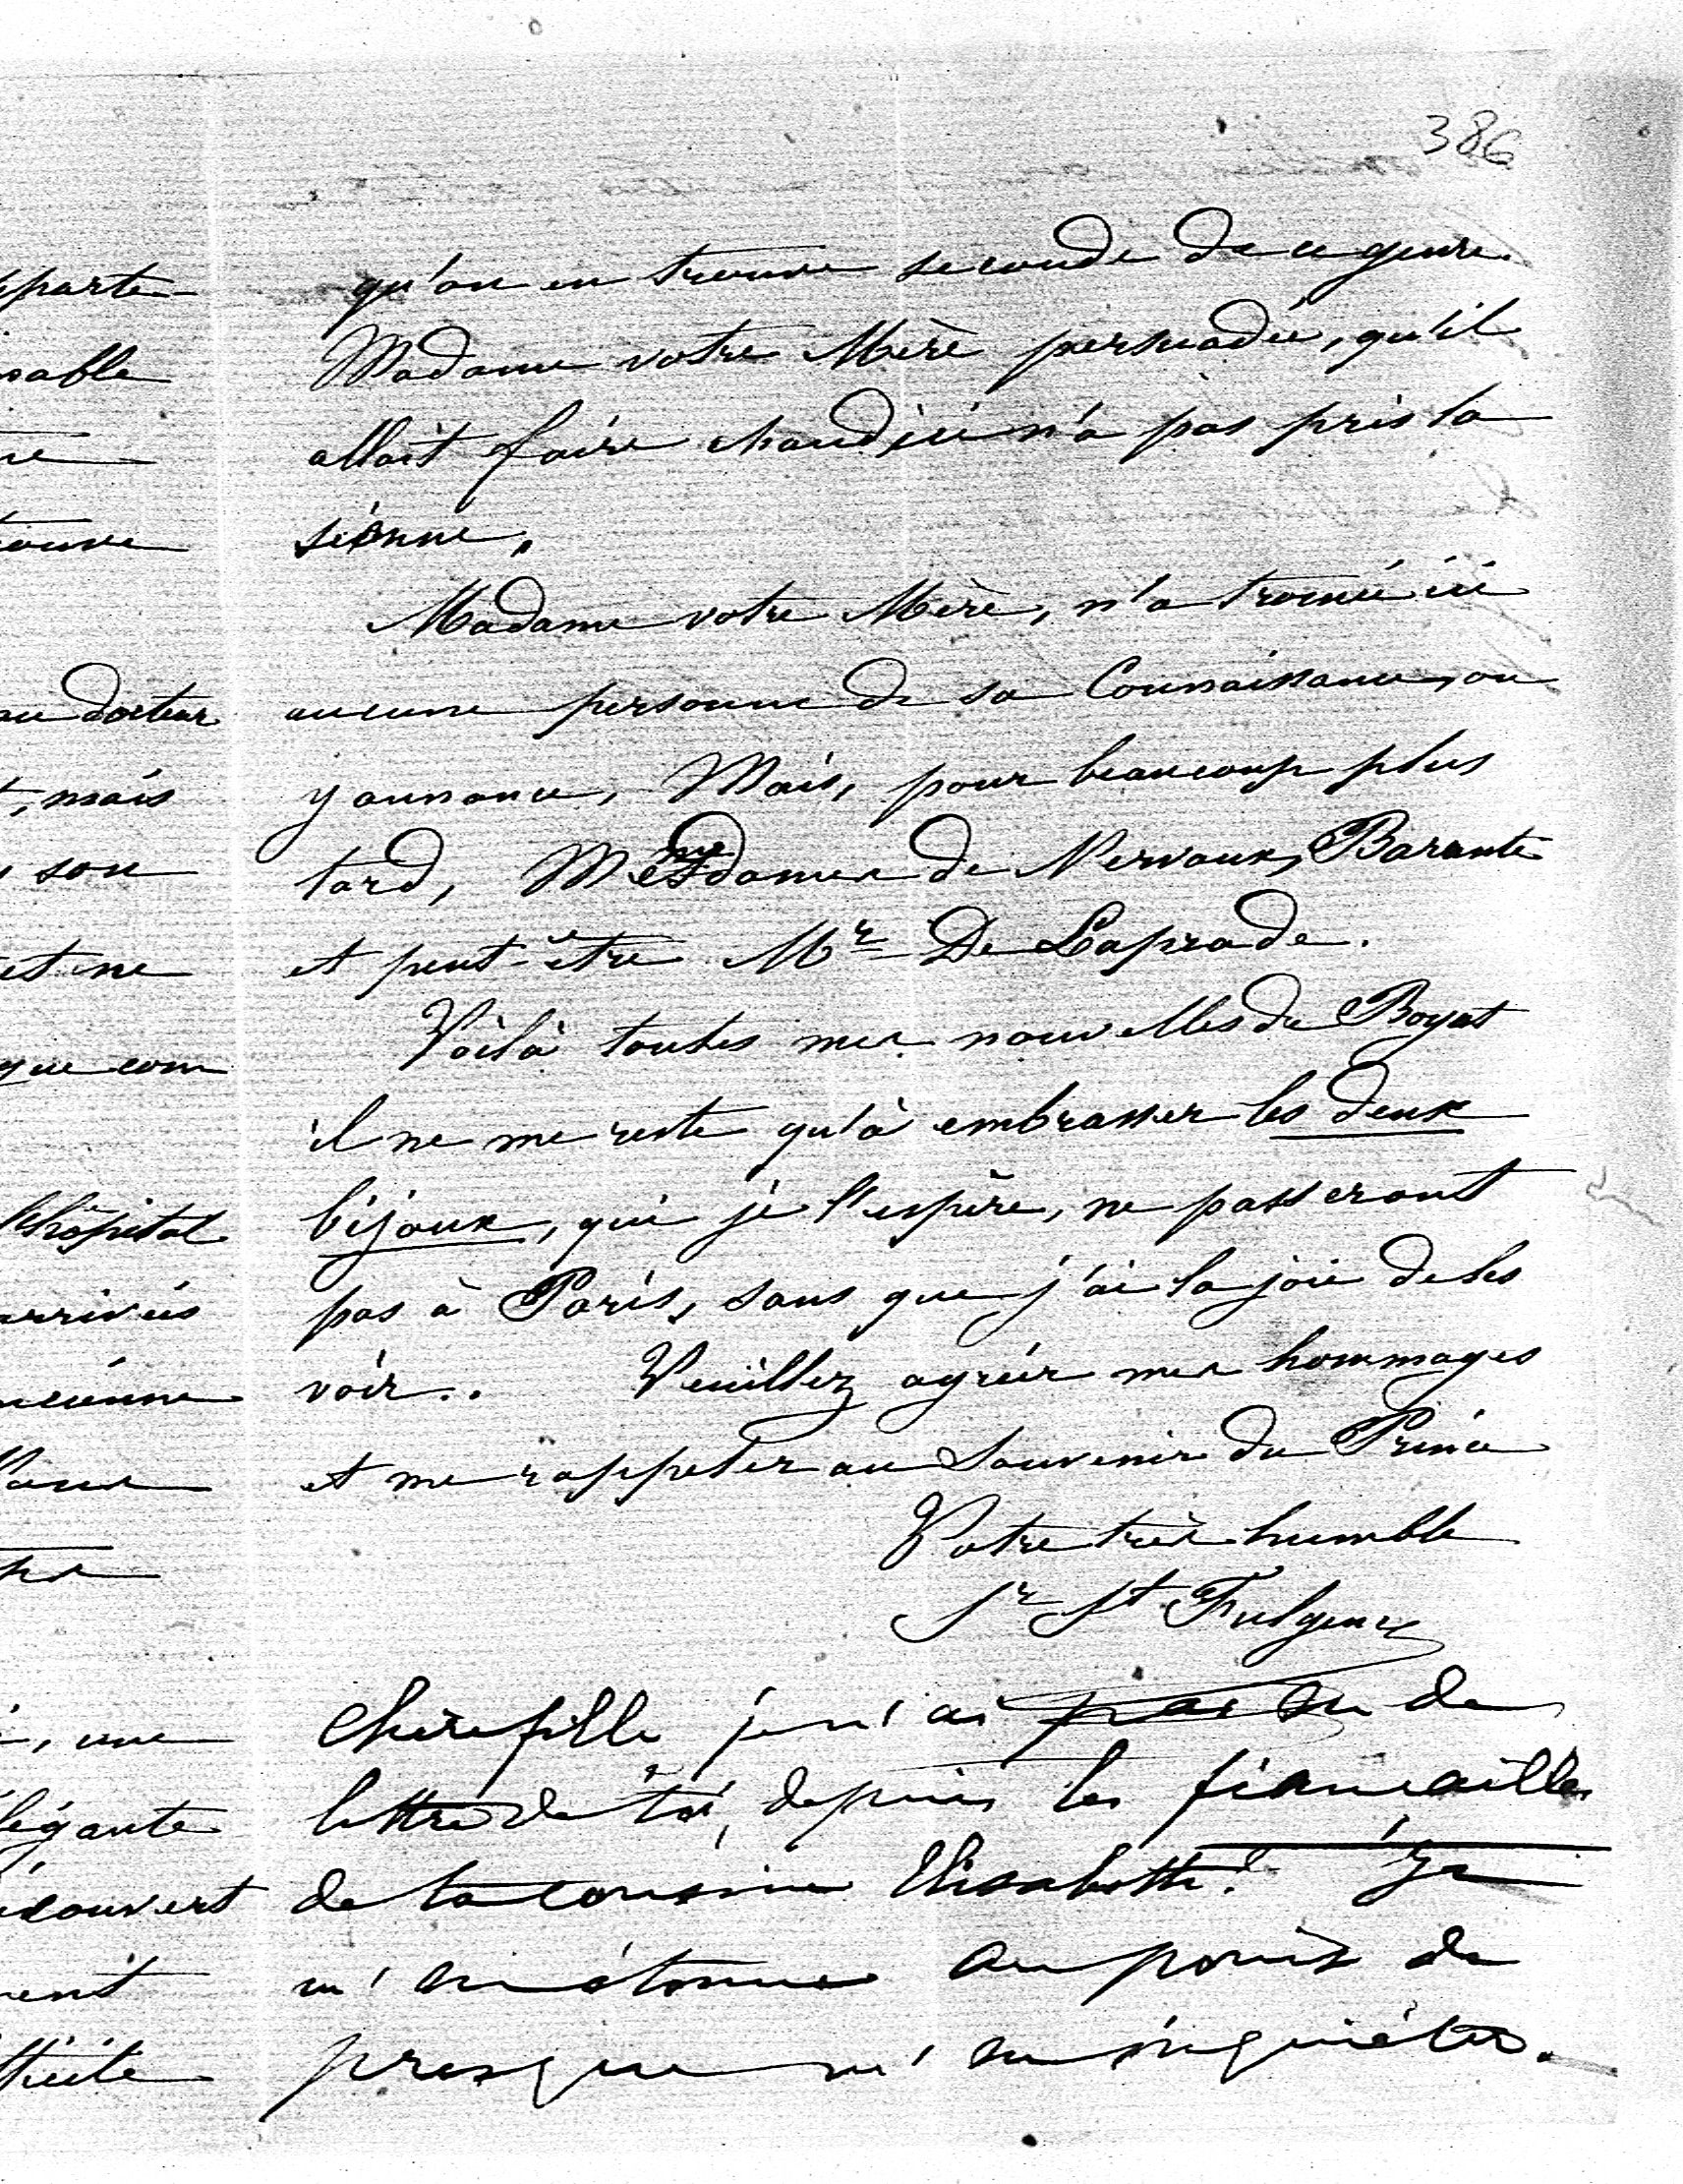 386
qu'on en trouve seconde de ce genre.
Madame votre Mère persuadée, qu'il
allait faire chaud ici n'a pas pris la
sienne.
Madame votre Mère, n'a trouvé ici
aucune personne de sa Connaissance, on
y annonce, Mais, pour beaucoup plus
tard, Mesdames de Nervaux, Barante
et peut-être Mr De Laprade.
Voilà toutes mes nouvelles de Royat
il ne me reste qu'à embrasser les deux
bijoux, qui je l'espère, ne passeront
pas à Paris, sans que j'ai la joie de les
voir.. Veuillez agréer mes hommages
et me rappeler au Souvenir du Prince
Votre très humble
Sr St Fulgence
Chère fille je n'ai pas eu de
lettre de toi, depuis les fiançailles
de ta cousine Elisabeth! Je
m'en étonne au point de
presque m'en inquiéter.
pparte-
sable
ne
ouve
au docteur
t, mais
son
et ne
que com
l'hôpital
arrivés
cienne
, une
légante
couvert
ent